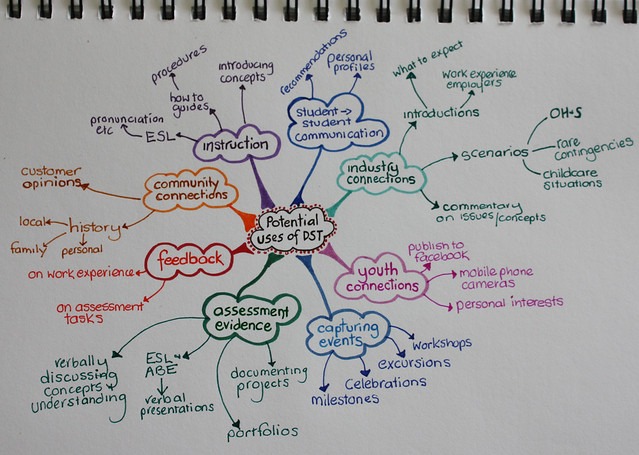 Potential
uses of DST
instruction
procedures
how to
guides
introducing
concepts
pronunciation
etc
ESL
student →
student
communication
recommendations
personal
profiles
industry
connections
introductions
what to expect
work experience
employers
scenarios
OH+S
rare
contingencies
childcare
situations
commentary
on issues/concepts
youth
connections
publish to
facebook
mobile phone
cameras
personal interests
capturing
events
workshops
excursions
celebrations
milestones
assessment
evidence
verbally
discussing
concepts +
understanding
ESL +
ABE
verbal
presentations
portfolios
documenting
projects
feedback
on work experience
on assessment
tasks
community
connections
customer
opinions
history
local
family
personal